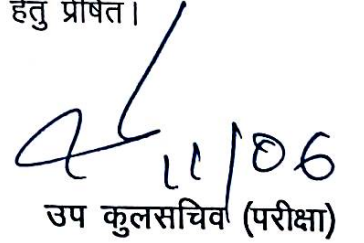 हेतु प्रेषित।
11/06
उप कुलसचिव (परीक्षा)